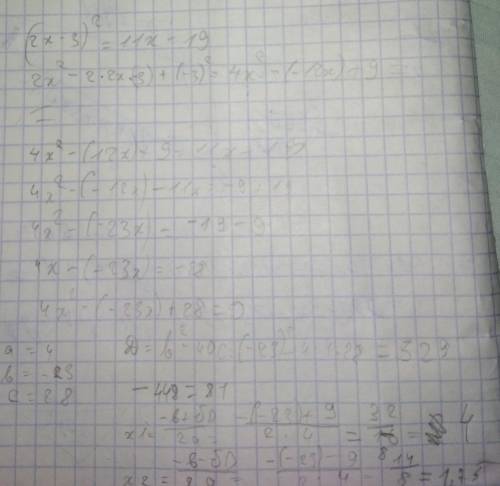 (2x-3)² = 11x - 19
2x² - 2·2x·3) + (-3)² = 4x² - (-12x) + 9 =
4x² - (12x) + 9 = 11x - 19
4x² - (-12x) - 11x = -9 - 19
4x² - (-23x) = -19 - 9
4x - (-23x) = -28
4x² - (-23x) + 28 = 0
a = 4
b = -23
c = 28
D = b² - 4ac = (-23)² - 4·4·28 = 529
- 448 = 81
x1 = (-b+√D)/(2a) = (-(-23)+9)/(2·4) = 32/8 = 4
x2 = (-b-√D)/(2a) = (-(-23)-9)/(2·4) = 14/8 = 1,75